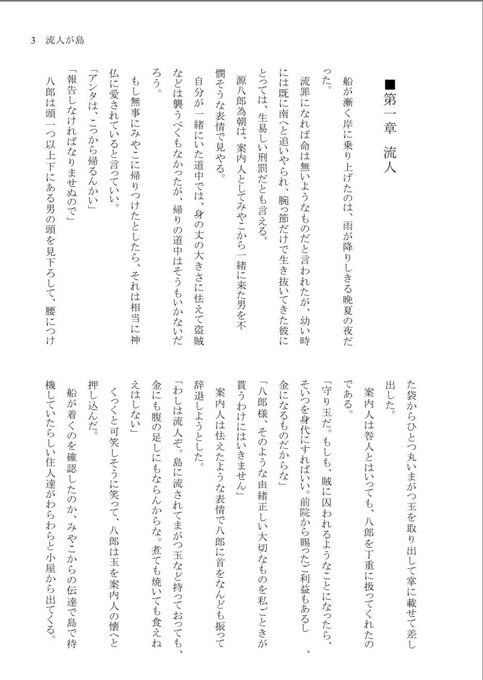 3　流人が島
■第一章　流人
船が漸く岸に乗り上げたのは、雨が降りしきる晩夏の夜だ
った。
流罪になれば命は無いようなものだと言われたが、幼い時
には既に南へと追いやられ、腕っ節だけで生き抜いてきた彼に
とっては、生易しい刑罰だとも言える。
源八郎為朝は、案内人としてみやこから一緒に来た男を不
憫そうな表情で見やる。
自分が一緒にいた道中では、身の丈の大きさに怯えて盗賊
などは襲うべくもなかったが、帰りの道中はそうもいかないだ
ろう。
もし無事にみやこに帰りつけたとしたら、それは相当に神
仏に愛されていると言っていい。
「アンタは、こっから帰るんかい」
「報告しなければなりませぬので」
八郎は頭一つ以上下にある男の頭を見下ろして、腰につけ
た袋からひとつ丸いまがつ玉を取り出して掌に載せて差し
出した。
案内人は咎人とはいっても、八郎を丁重に扱ってくれたの
である。
「守り玉だ。もしも、賊に囚われるようなことになったら、
そいつを身代にすればいい。前院から賜ったご利益もあるし、
金になるものだからな」
「八郎様、そのような由緒正しい大切なものを私ごときが
貰うわけにはいきません」
案内人は怯えたような表情で八郎に首をなんども振って
辞退しようとした。
「わしは流人ぞ。島に流されてまがつ玉など持っておっても、
金にも腹の足しにもならんからな。煮ても焼いても食えね
えはしない」
くっくと可笑しそうに笑って、八郎は玉を案内人の懐へと
押し込んだ。
船が着くのを確認したのか、みやこからの伝達で島で待
機していたらしい住人達がわらわらと小屋から出てくる。